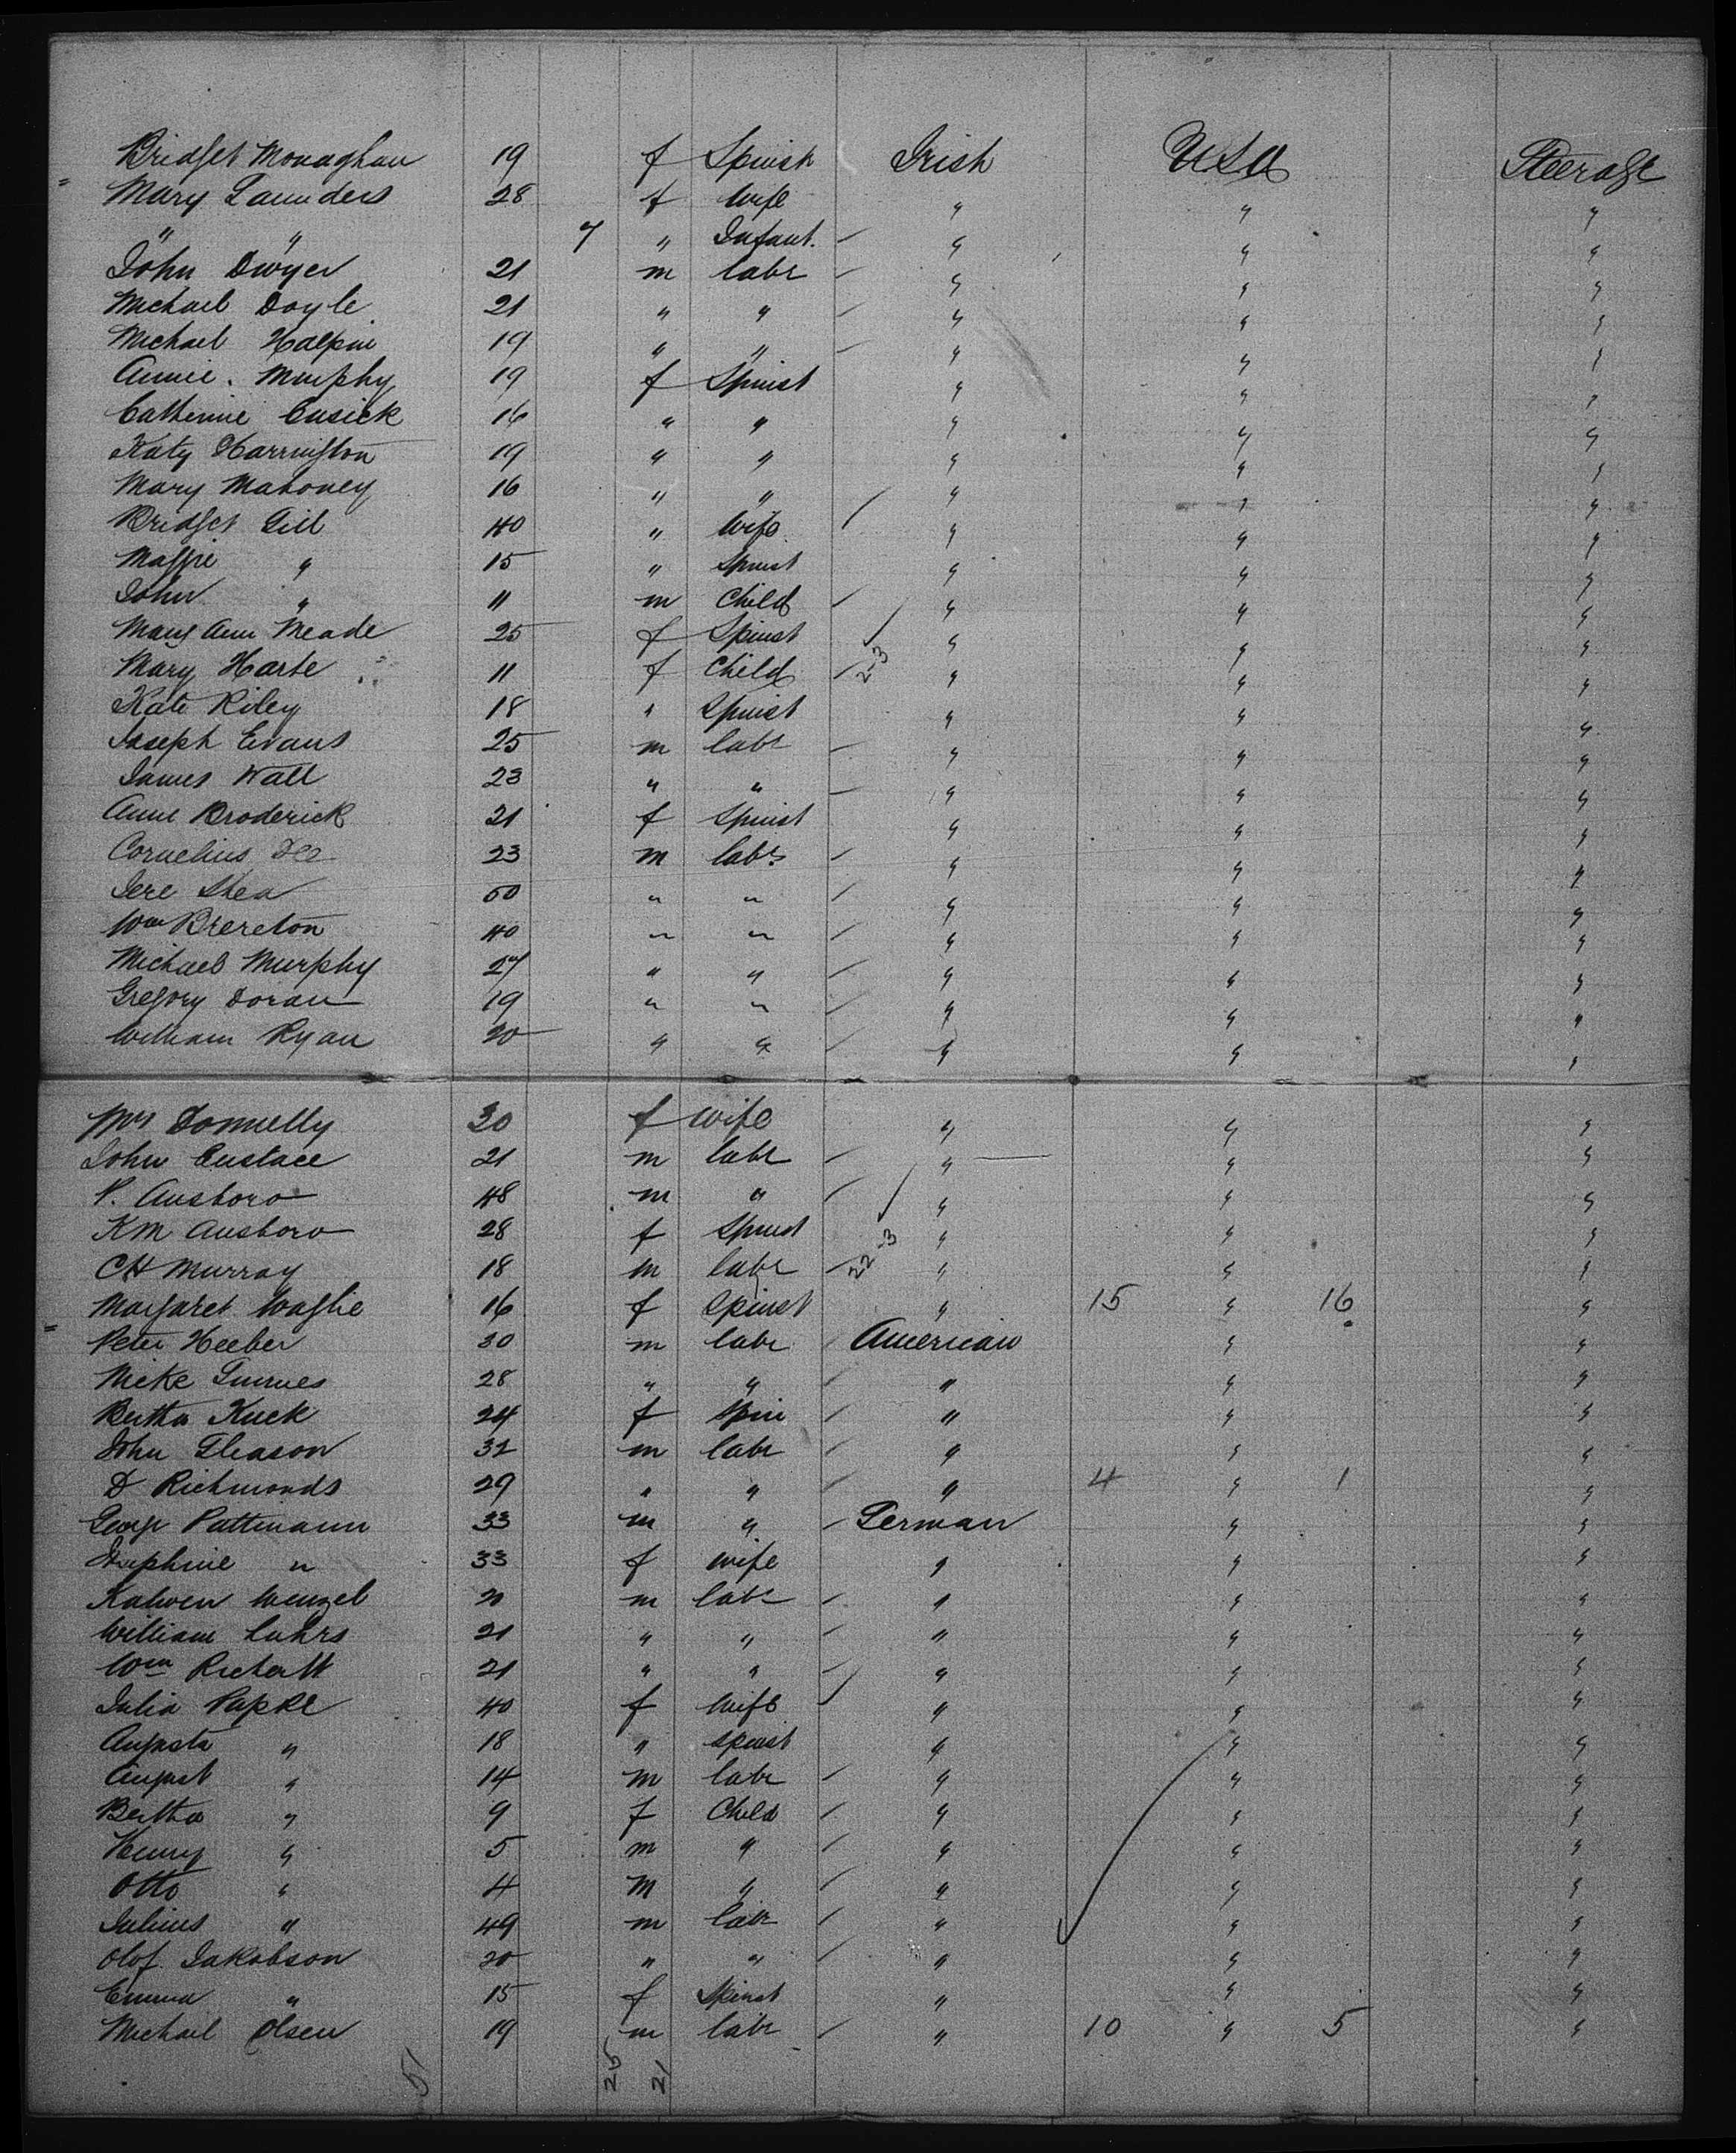 Bridget Monaghan 19 f Spinst Irish USA Steerage
Mary Saunders 28 f Wife " " "
" " 7 " Infant. " " "
John Dwyer 21 m labr " " "
Michael Doyle 21 " " " " "
Michael Halpin 19 " " " " "
Annie. Murphy 19 f Spinst " " "
Catherine Cusick 16 " " " " "
Katy Harrington 19 " " " " "
Mary Mahoney 16 " " " " "
Bridget Gill 40 " Wife " " "
Maggie " 15 " Spinst " " "
John " 11 m Child " " "
Mary Ann Meade 25 f Spinst " " "
Mary Harte 11 f Child 23 " " "
Kate Riley 18 " Spinst " " "
Joseph Evans 25 m labr " " "
James Wall 23 " " " " "
Anne Broderick 21 f Spinst " " "
Cornelius 23 m labr " " "
Jere Shea 50 " " " " "
Wm Brereton 40 " " " " "
Michael Murphy 27 " " " " "
Gregory Doran 19 " " " " "
William Ryan 20 " " " " "
Mrs Donnelly 30 f wife " " "
John Eustace 21 m labr " " "
P. Ausboro 48 m " " " "
KM Ausboro 28 f Spinst " " "
CH Murray 18 m labr " " "
Margaret 16 f Spinst " 15 " 16 "
Peter Heeber 30 m labr American " "
Nicke 28 " " " " "
Bertha Kuck 24 f Spin " " "
John Gleason 32 m labr " " "
D Richmonds 29 " " " 4 " 1 "
George Pattmann 33 m " German " "
" 33 f wife " " "
Wenzel 20 m labr " " "
William Luhrs 21 " " " " "
Wm 21 " " " " "
Julia Papke 40 f Wife " " "
Augusta " 18 " spinst " " "
August " 14 m labr " " "
Bertha " 9 f Child " " "
Henry " 5 m " " " "
Otto " 4 m " " " "
Julius " 49 m labr " " "
Olof Jakobson 20 " " " " "
Emma " 15 f Spinst " " "
Michael Olsen 19 m labr " 10 " 5 "
51 25 21